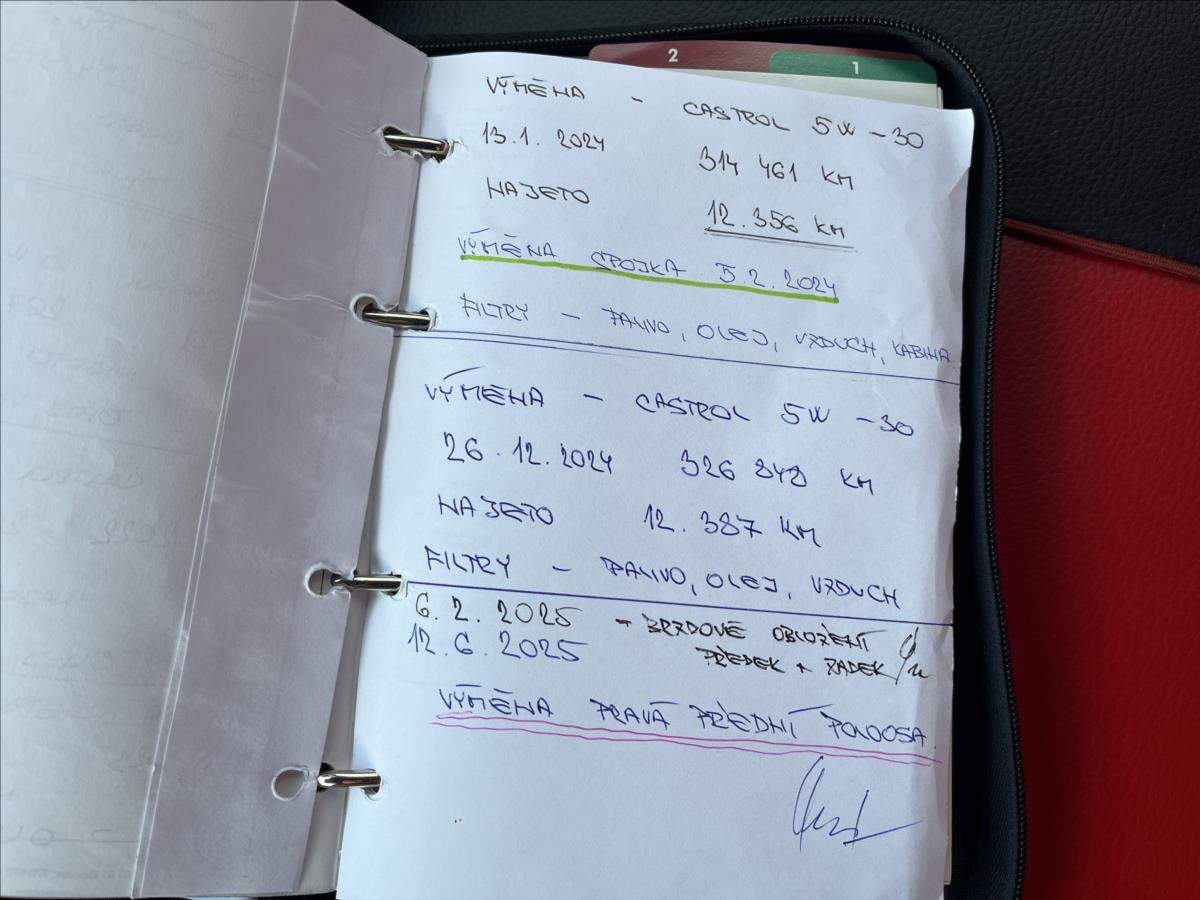 2
1
VÝMĚNA - CASTROL 5W-30
13.1. 2024 314 461 KM
NAJETO 12.356 KM
VÝMĚNA SPOJKA 5.2.2024
FILTRY - PALIVO, OLEJ, VZDUCH, KABINA
VÝMĚNA - CASTROL 5W-30
26.12.2024 326 848 KM
NAJETO 12.387 KM
FILTRY - PALIVO, OLEJ, VZDUCH
6.2.2025 - BRZDOVÉ OBLOŽENÍ
PŘEDEK + ZADEK
12.6.2025
VÝMĚNA PRAVÁ PŘEDNÍ POLOOSA